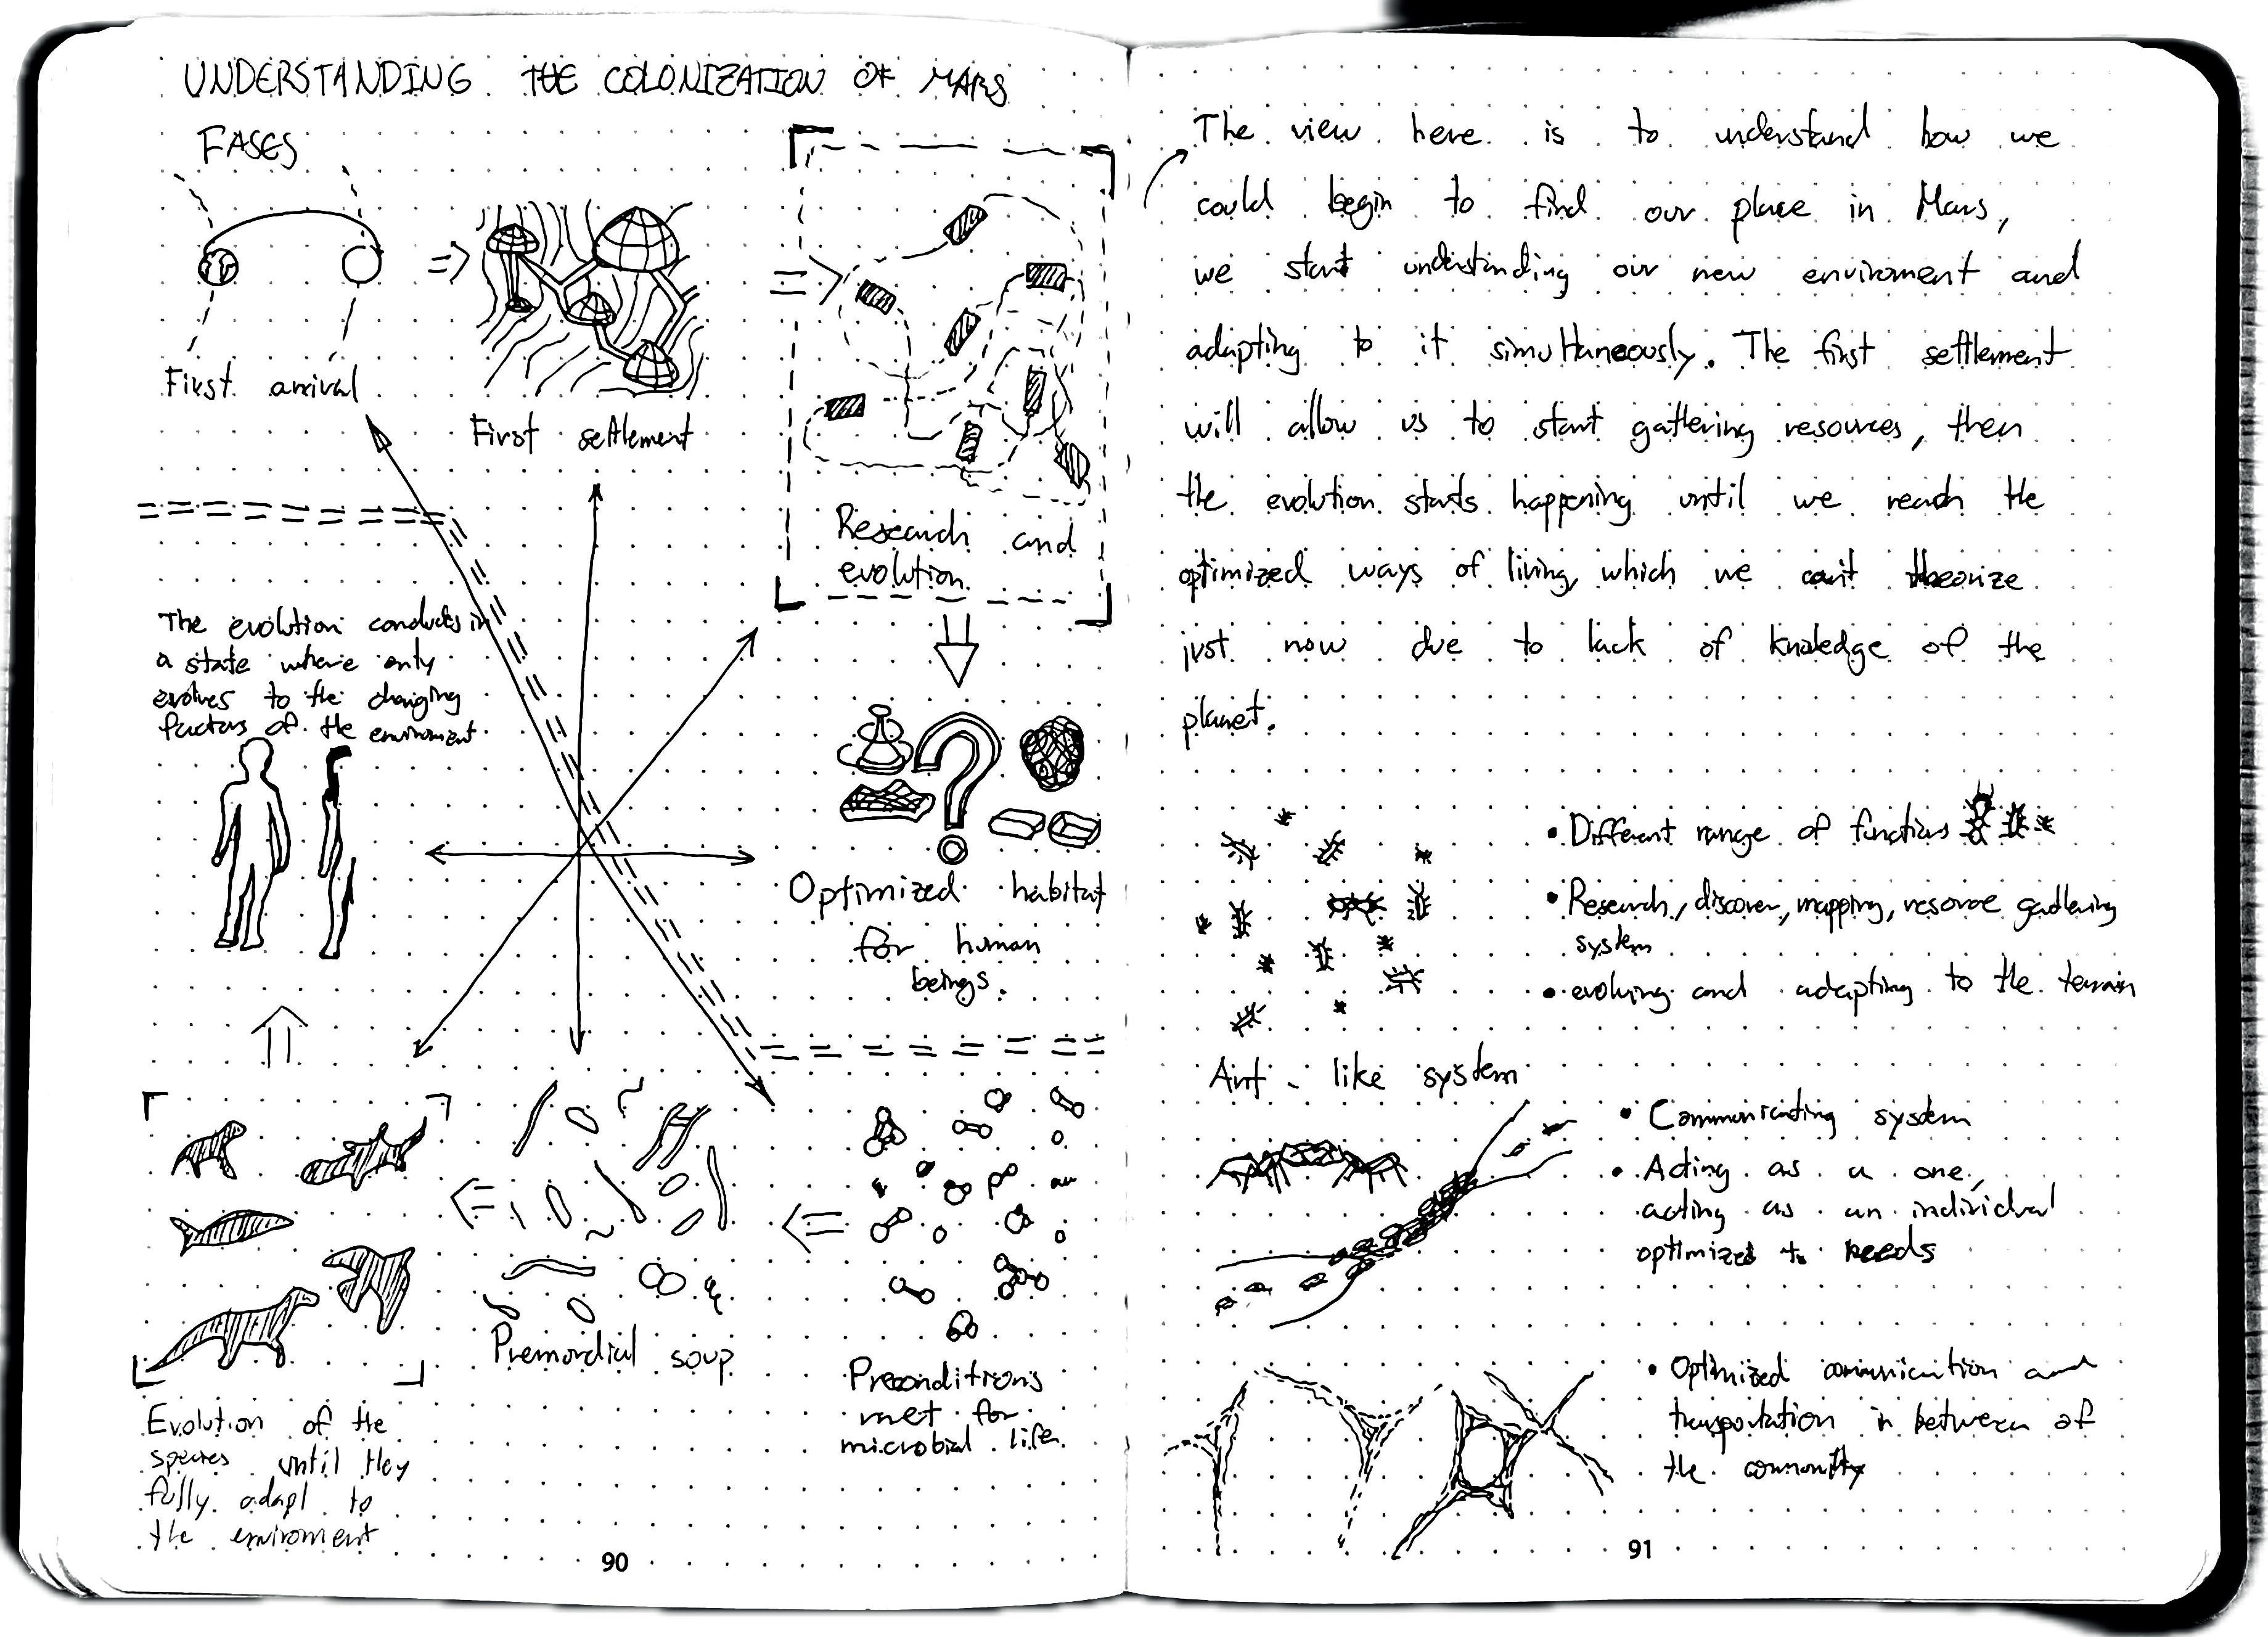 UNDERSTANDING THE COLONIZATION OF MARS
FASES
First arrival
First settlement
Research and
evolution
The evolution conducts in
a state where only
evolves to the changing
factors of the enviroment
Optimized habitat
for human
beings.
Evolution of the
species until they
fully adapt to
the enviroment
Premordial soup
Preconditions
met for
microbial life
90
The view here is to understand how we
could begin to find our place in Mars,
we start understanding our new enviroment and
adapting to it simultaneously. The first settlement
will allow us to start gathering resources, then
the evolution starts happening until we reach the
optimized ways of living, which we can't theorize
just now due to lack of knowledge of the
planet.
• Different range of functions
• Research, discover, mapping, resorce gathering
system
• evolving and adapting to the terrain
Ant-like system
• Communicating system
• Acting as a one,
acting as an individual
optimized to needs
• Optimized communication and
transportation in between of
the community
91